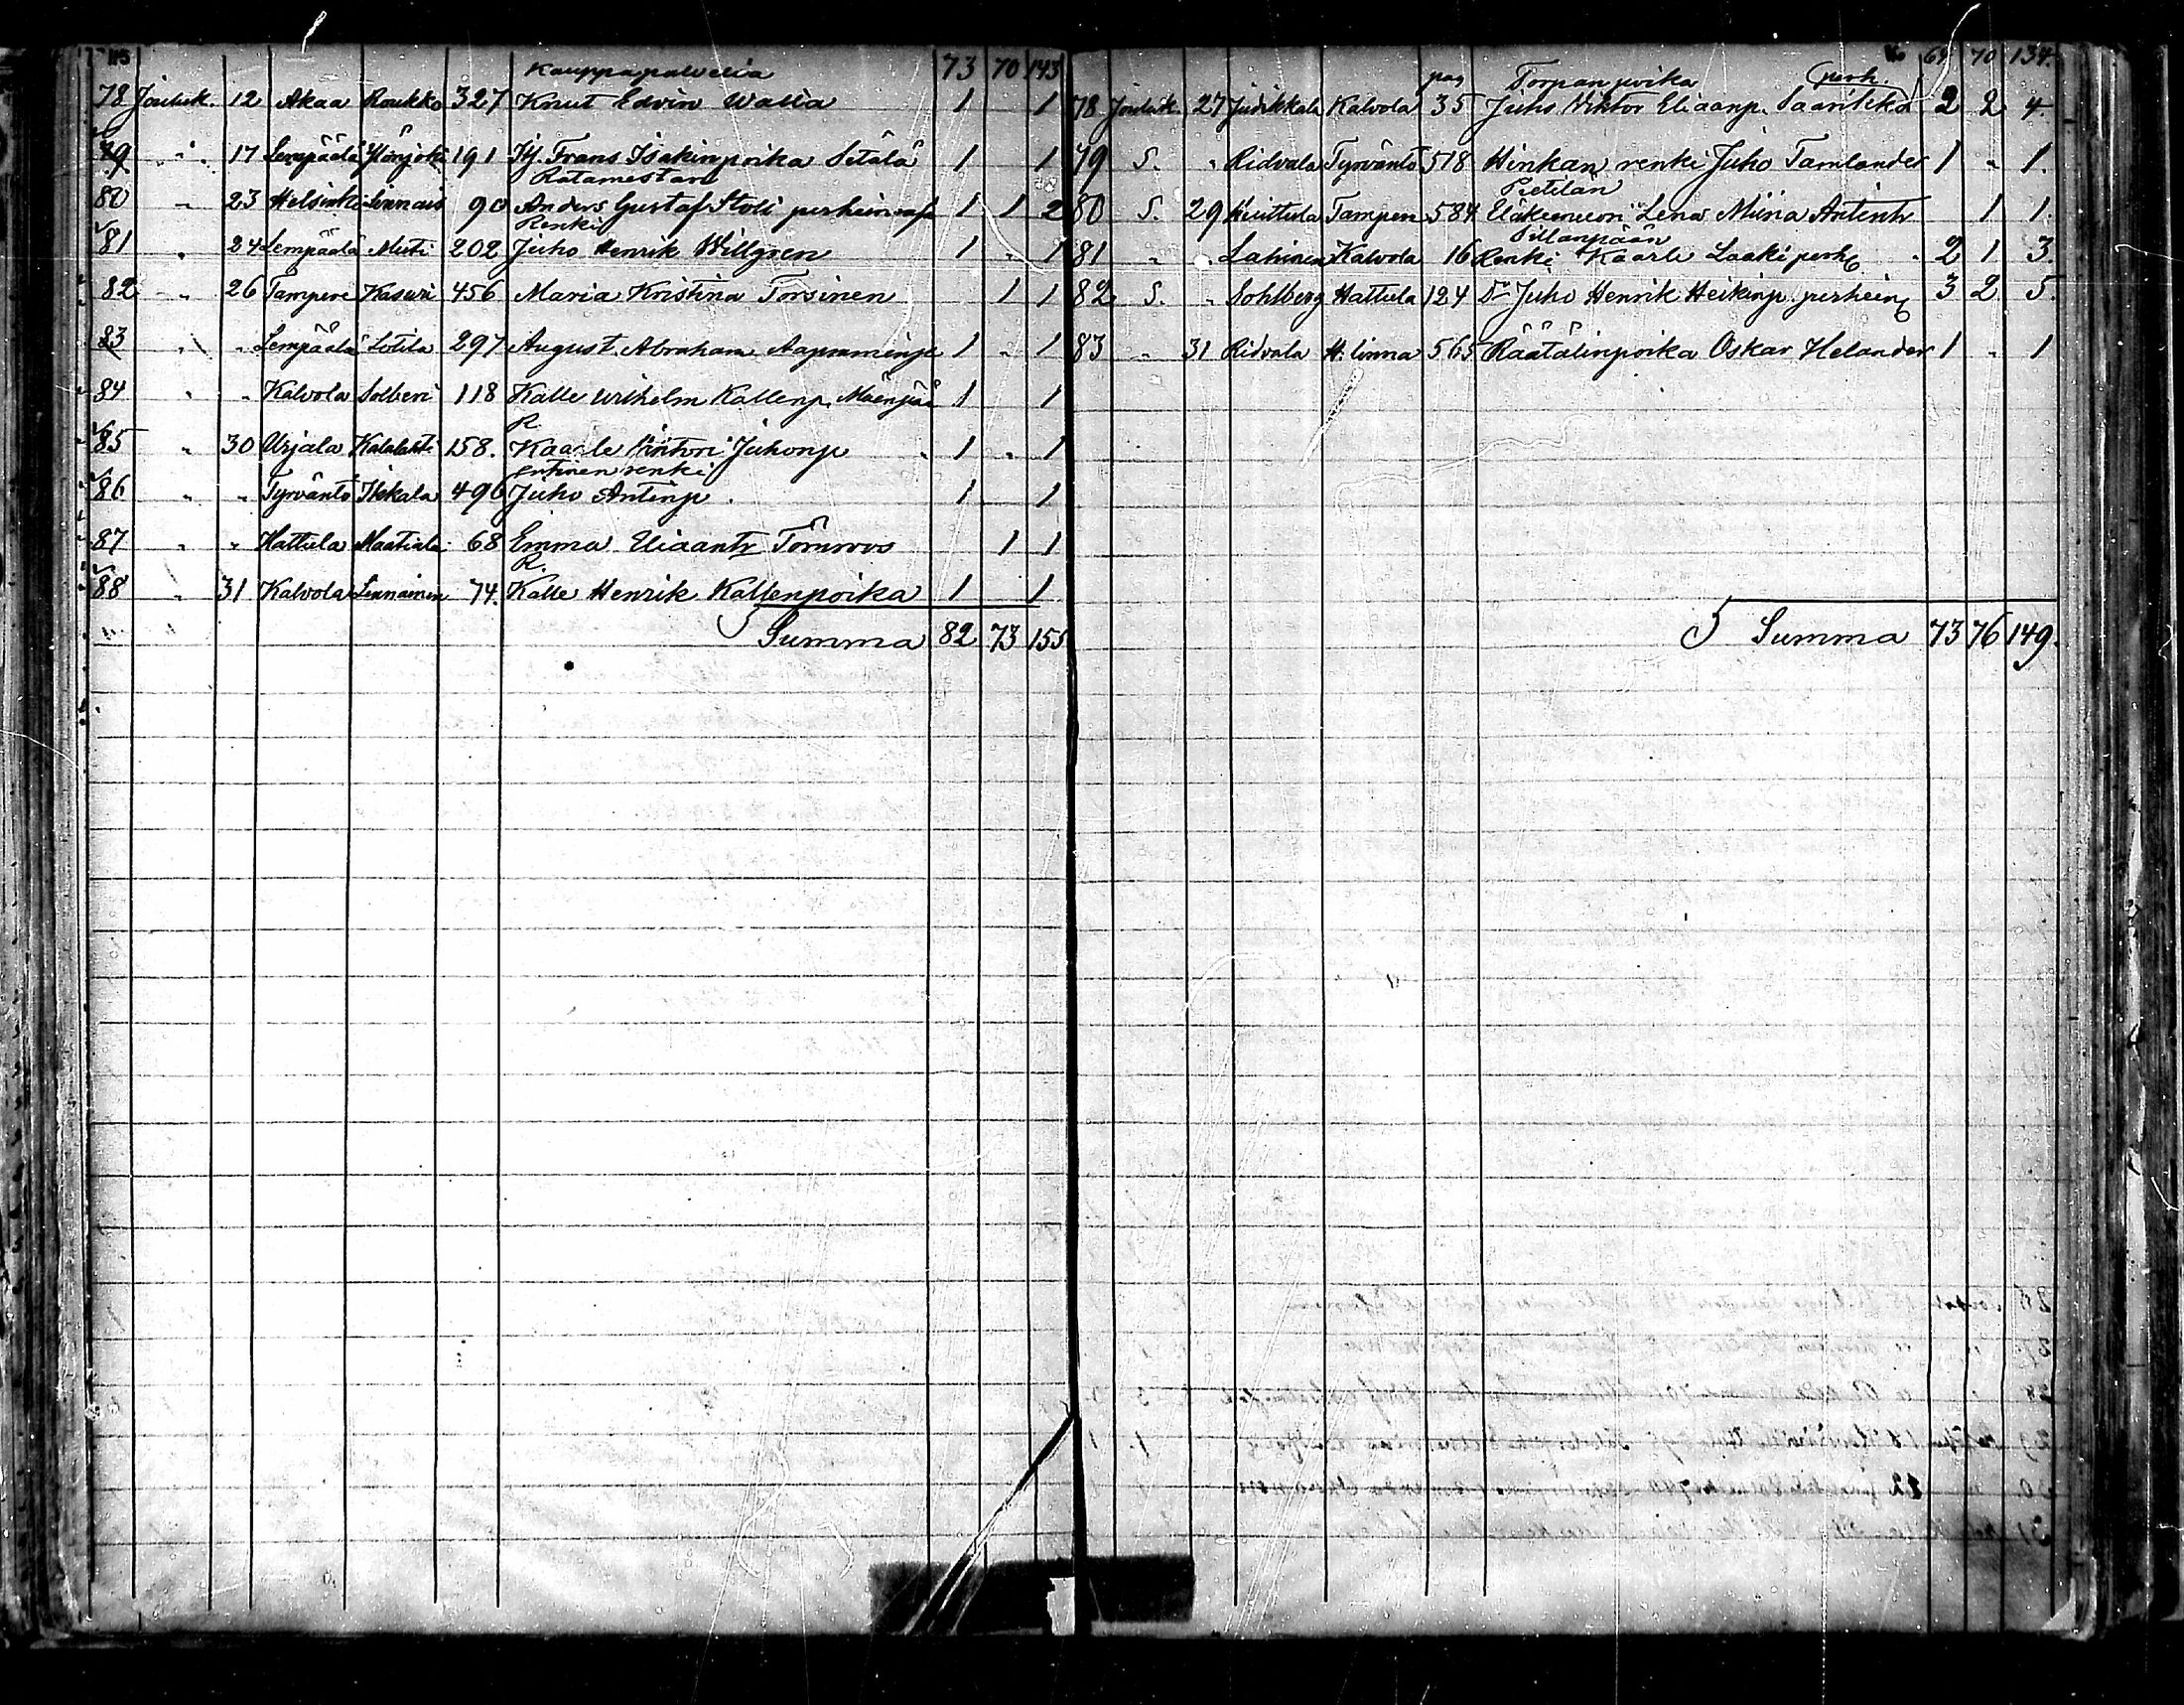 115 73 70 143
Kauppapalvelia
78 Jouluk. 12 Akaa Roukko 327 Knut Edvin Walia 1 1
79 " 17 Lempäälä Ylönjoki 191 Itj. Frans Isakinpoika Setälä 1 1
Ratamestari
80 " 23 Helsinki Linnais 90 Anders Gustaf Stoli perheineen 1 1 2
Renki
81 " 24 Lempäälä Muti 202 Juho Henrik Willgren 1 " 1
82 " 26 Tampere Kaswi 456 Maria Kristina Torsinen 1 1
83 " " Lempäälä Lotila 297 August Abraham Aapraminp. 1 " 1
84 " " Kalvola Solberi 118 Kalle Wilhelm Kallenp. Mäenpää 1 1
R.
85 " 30 Urjala Kalalahti 158. Kaarle Vihtori Juhonp 1 " 1
entinen renki
86 " " Tyrväntö Ikkala 496 Juho Antinp. 1 1
87 " " Hattula Maatiala 68 Emma Eliaantr Törnroos 1 1
R.
88 " 31 Kalvola Linnainen 74. Kalle Henrik Kallenpoika 1 1
Summa 82 73 155
69 70 134.
pag Torpanpoika perh.
78 Jouluk. 27 Jutikkala Kalvola 35 Juho Viktor Eliaanp. Saarikka 2 2 4.
79 S. " Ridvala Tyrväntö 518 Hinkan renki Juho Tamlander 1 " 1.
Pietilän
80 S. 29 Huittula Tampere 584 Eläkemuori Lena Miina Antintr 1 1.
Sillanpään
81 " " Lahinen Kalvola 16 Renki Kaarle Laaki perh. 2 1 3.
82 S. " Sohlberg Hattula 124 Do Juho Henrik Heikinp. perhein 3 2 5.
83 " 31 Ridvala H:linna 565 Räätälinpoika Oskar Helander 1 " 1
Summa 73 76 149.